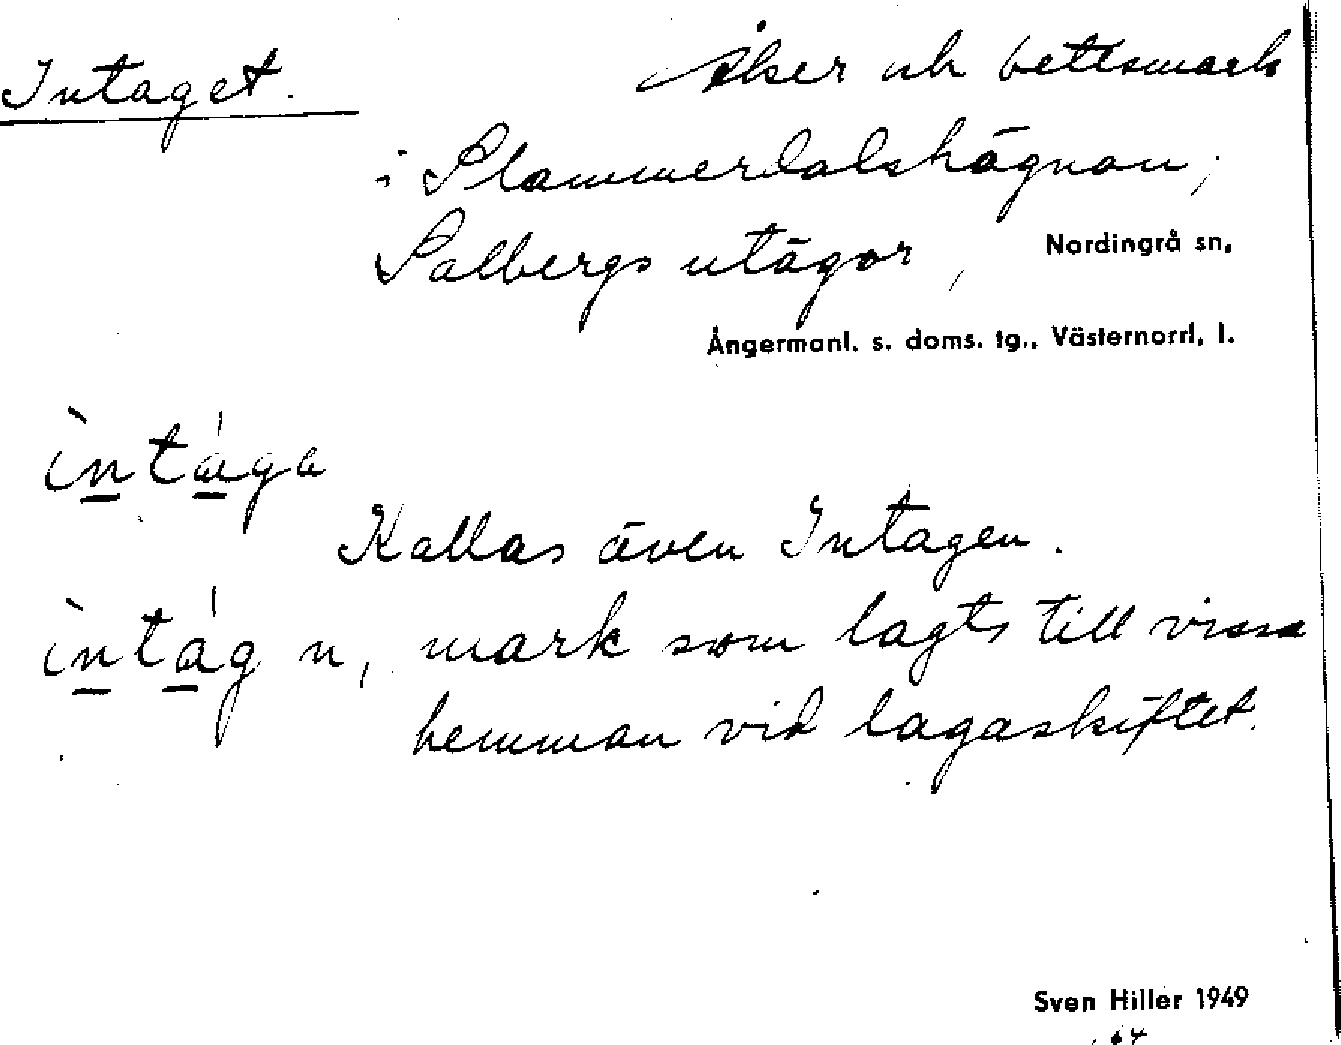 Intaget. Åker och betesmark
i Slammerdalshägnan,
Salbergs utägor, Nordingrå sn,
Ångermanl. s. doms. tg., Västernorrl. l.
ìntága
Kallas även Intagen.
ìntág n, mark som lagts till vissa
hemman vid lagaskiftet.
Sven Hiller 1949